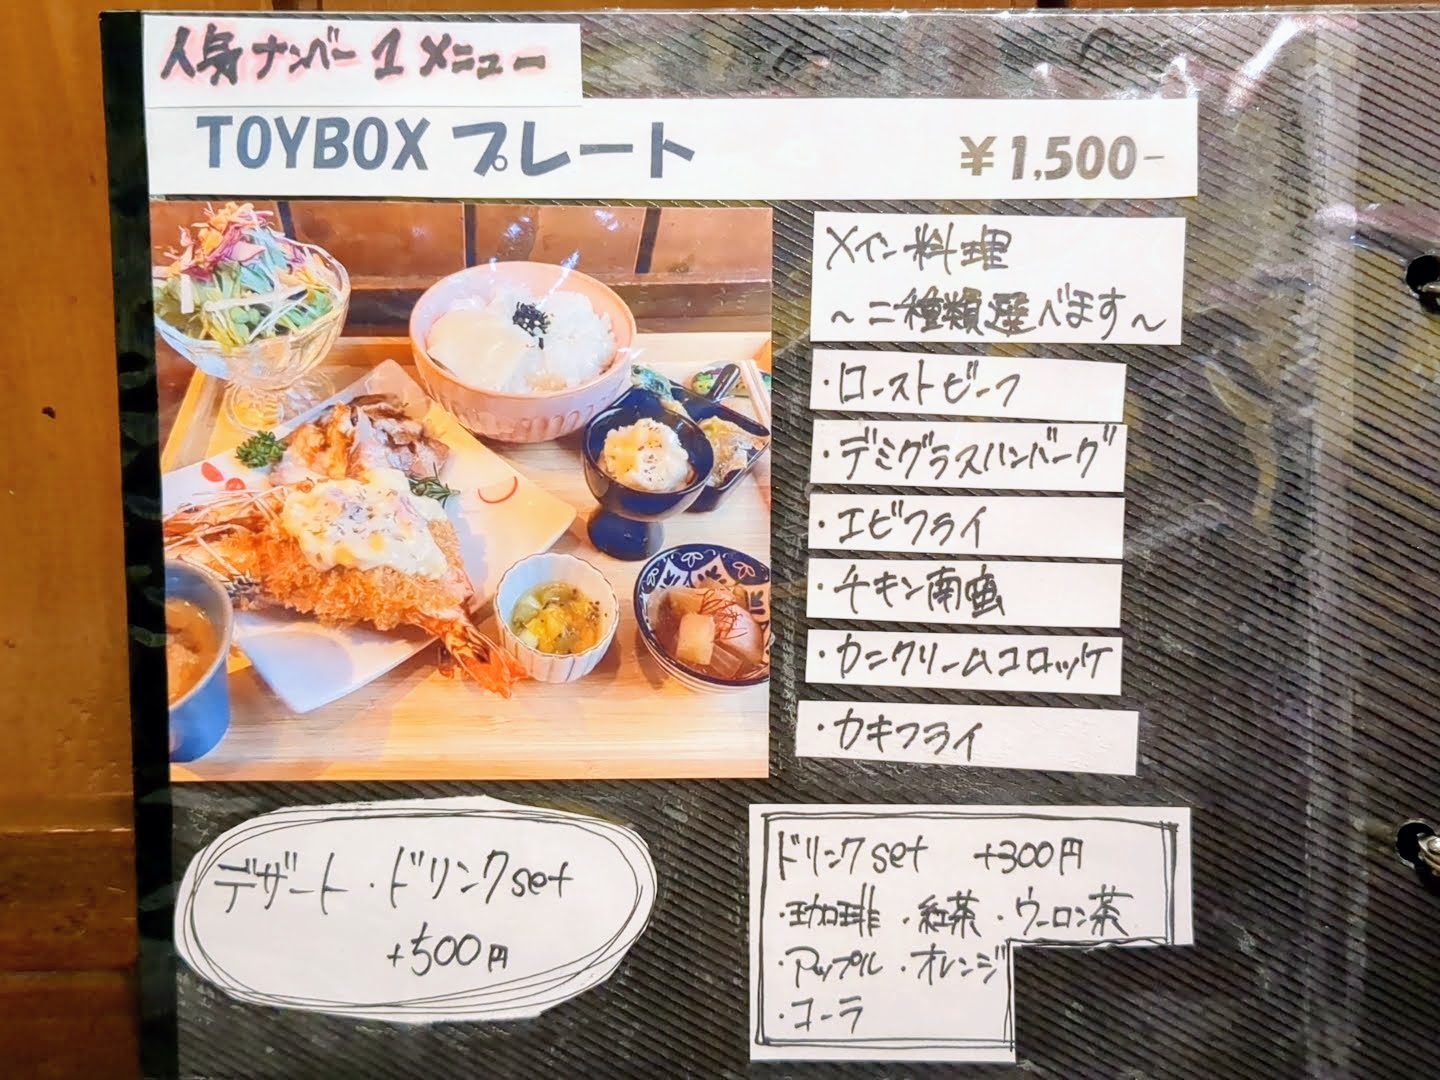 人気ナンバー1メニュー
TOYBOX プレート ¥1,500-
メイン料理
～二種類選べます～
・ローストビーフ
・デミグラスハンバーグ
・エビフライ
・チキン南蛮
・カニクリームコロッケ
・カキフライ
デザート・ドリンクset
+500円
ドリンクset +300円
・珈琲 ・紅茶 ・ウーロン茶
・アップル ・オレンジ
・コーラ